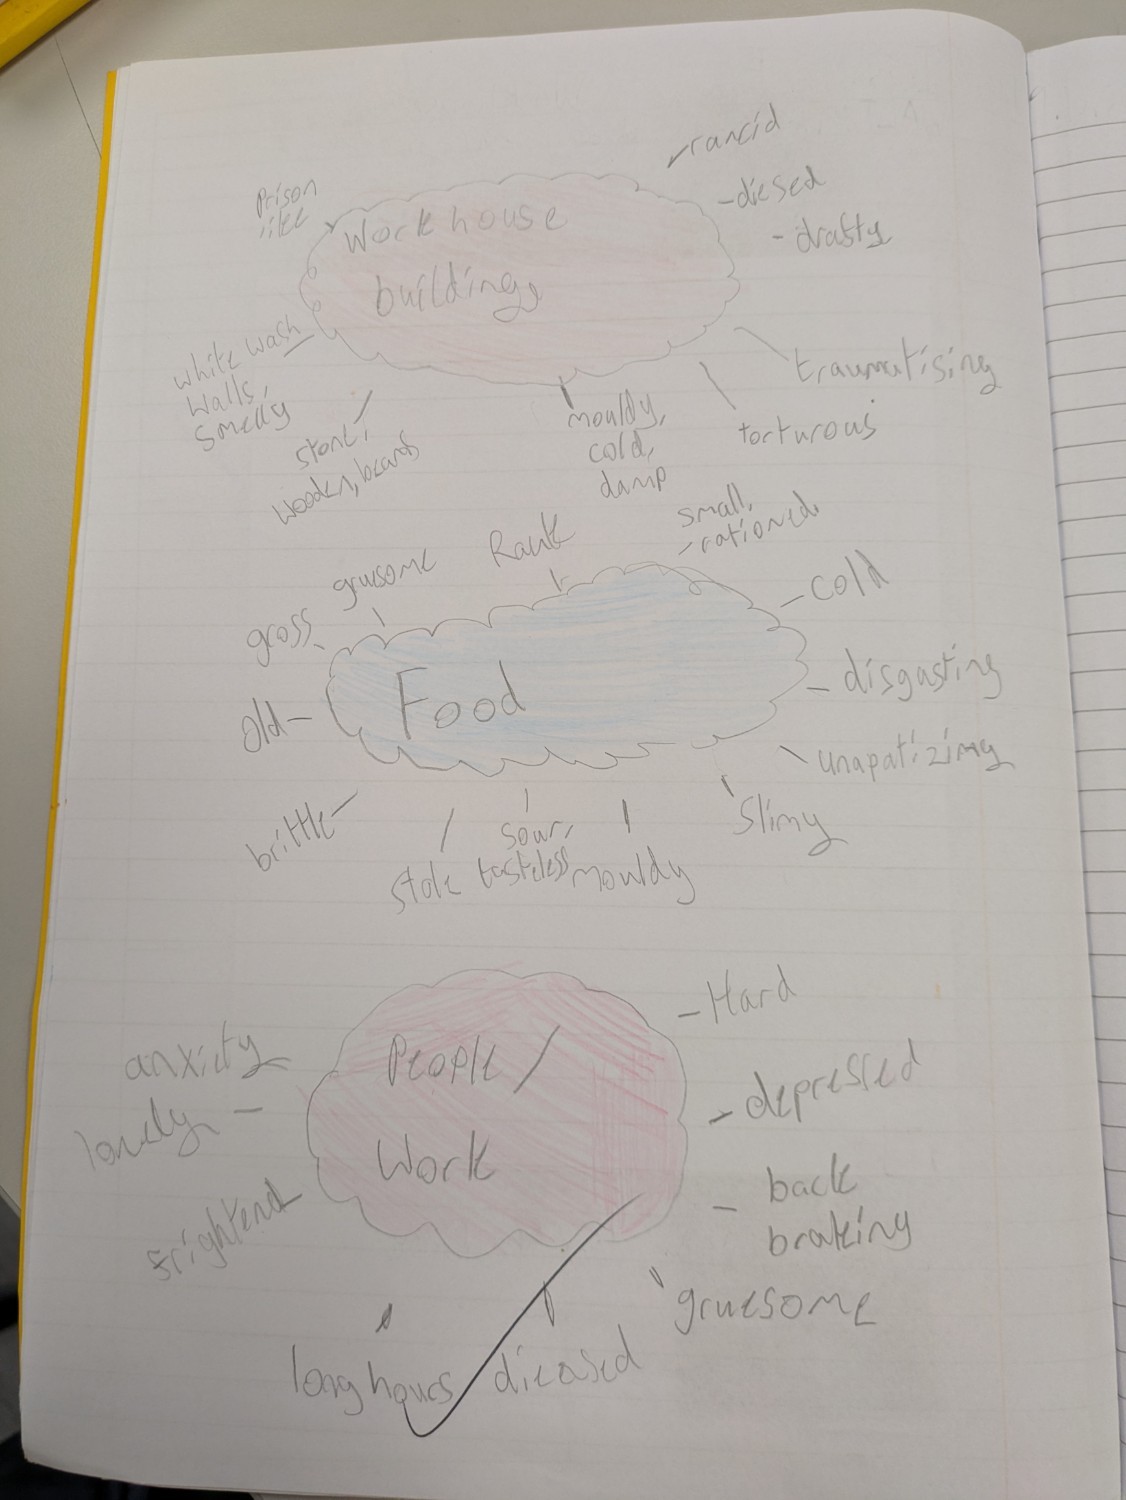 rancid
Prison
like
diesed
drafty
Workhouse
buildings
white wash
walls,
smelly
traumatising
torturous
stone,
wooden, boards
mouldy,
cold,
damp
small,
rationed
Rank
gruesome
gross
cold
Food
disgasting
old
unapatizimg
slimy
brittle
stale
sour,
tasteless
mouldy
Hard
People/
Work
anxiety
lonely
depressed
frightend
back
braking
gruesome
long hours
dieased